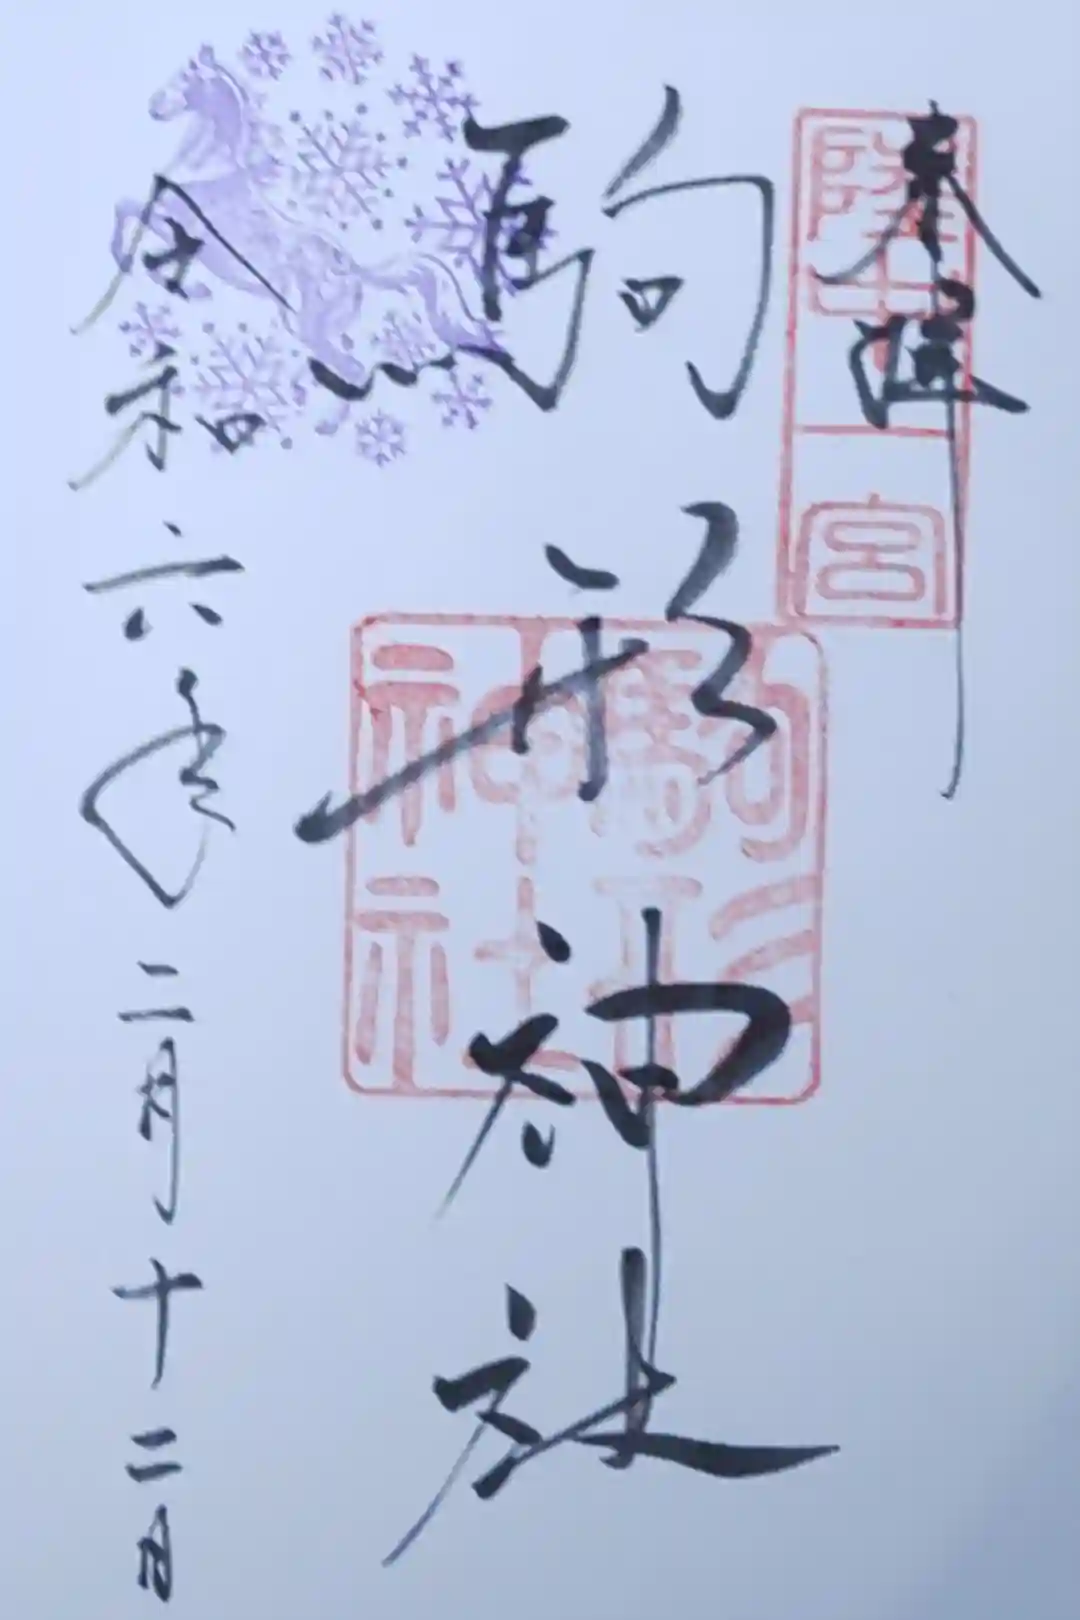 奉拝
陸中
一宮
駒形神社
駒形
神社
令和六年二月十二日